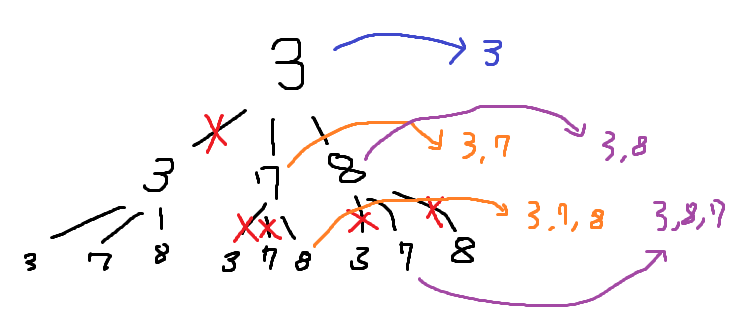 3 3
3 7 8 3,7 3,8
3 7 8 3 7 8 3 7 8 3,7,8 3,8,7